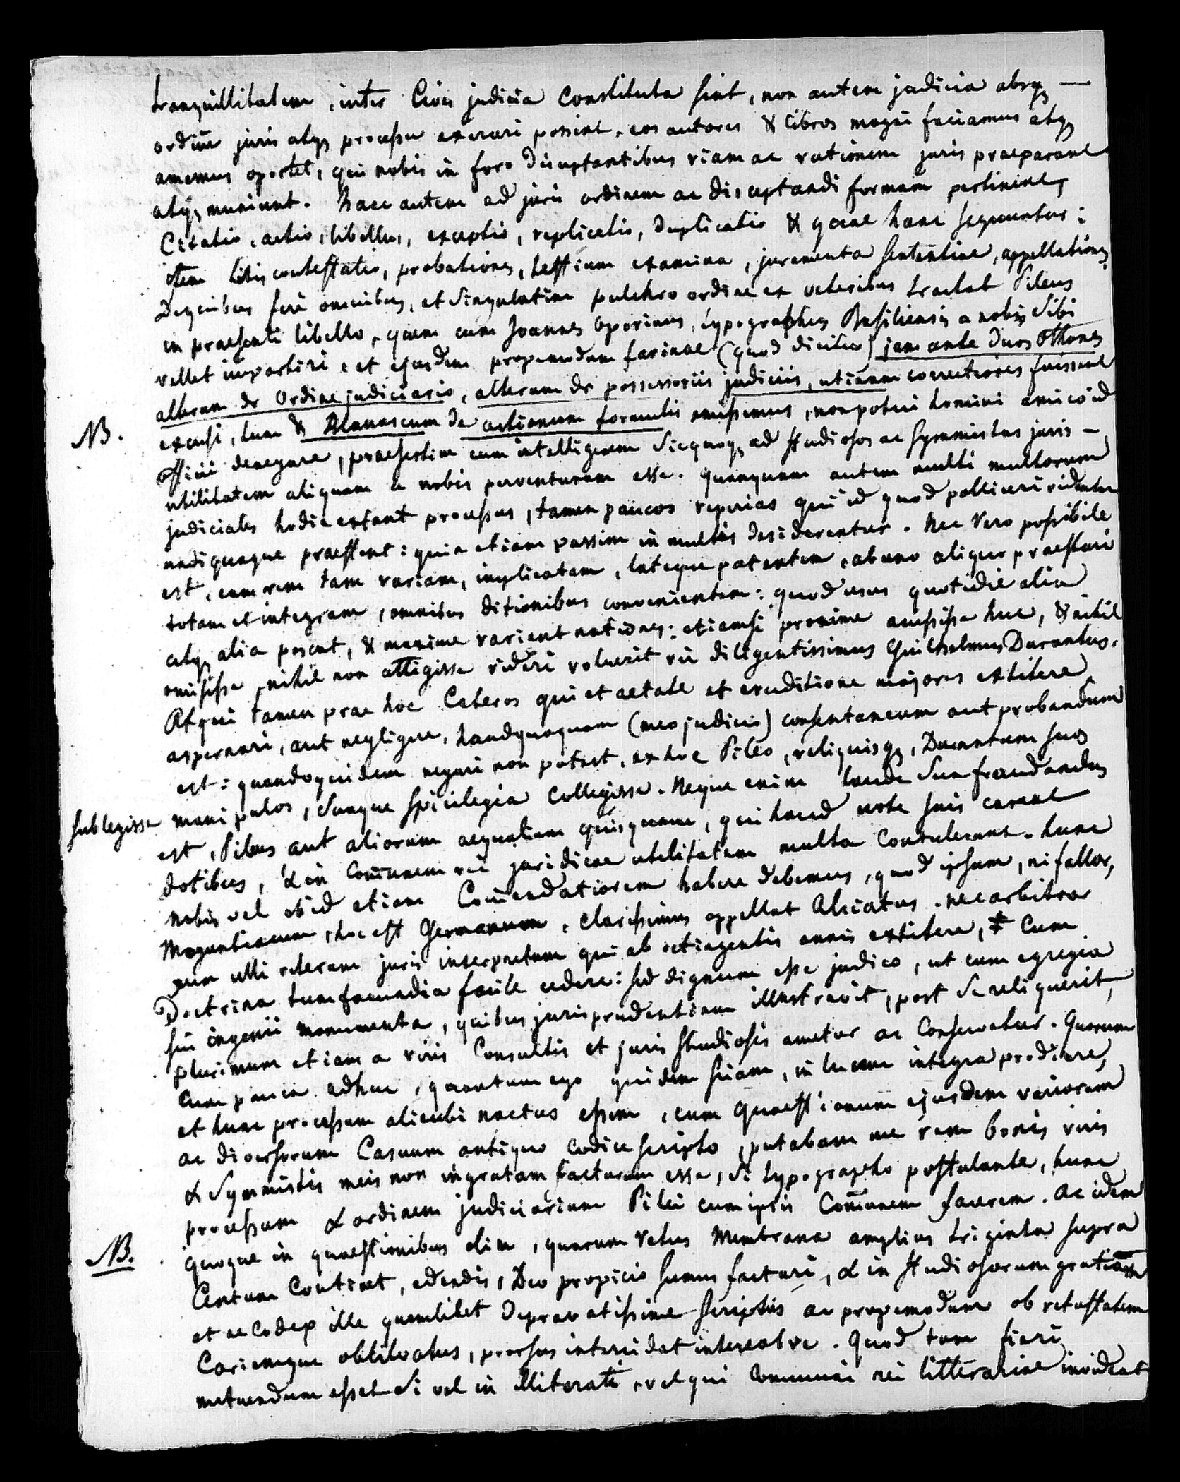 tranquillitatem, inter Cives judicia constituta sint, non autem judicia absq —
ordine juris atq processu exerceri possint, eos autores & libros magni faciamus atq
amemus oportet, qui nobis in foro disceptantibus viam ac rationem juris praeparant
atq muniunt. haec autem ad juris ordinem ac disceptandi formam pertinent,
Citatio, actio, libellus, exceptio, replicatio, duplicatio & quae hanc sequuntur:
item litis contestatio, probationes, testium examina, juramenta sententiae, appellationes.
De quibus fere omnibus, et singulatim pulchro ordine ex veteribus tractat Pileus
in praesenti libello, quem cum Joannes Oporinus, typographus Basiliensis a nobis sibi
vellet impartiri, et ejusdem propemodum farinae (quod dicitur) jam ante duos Othones
alterum de Ordine judiciario, alterum de possessoriis judiciis, utinam correctiores fuissent
NB.
excusi, tum & Blanascum de actionum formulis emisimus, non potui homini amico id
officii denegare, praesertim cum intelligerem sicquoq ad studiosos ac Symmistas juris —
utilitatem aliquam a nobis perventuram esse. quanquam autem multi multorum
judiciales hodie extant processus, tamen paucos reperias qui id quod polliceri videntur
undiquaque praestent: quia etiam passim in multis desiderentur. Nec vero possibile
est, cum rem tam variam, implicatam, lateque patentem, ab uno aliquo praestari
totam et integram, omnibus ditionibus convenientem: quod usus quotidie alia
atq alia poscat, & maxime varient nationes: etiamsi proxime accessisse huc, & nihil
omisisse, nihil non attigisse videri voluerit vir diligentissimus Guilhelmus Durantus.
Atqui tamen prae hoc Ceteros qui et aetate et eruditione majores extitere
aspernari, aut negligere, haudquaquam (meo judicio) consentaneum aut probandum
est: quandoquidem negari non potest, ex hoc Pileo, reliquisq, Durantum suos
sublegisse
manipulos, suaque spicilegia collegisse. Neque enim laude sua fraudandus
est, Pileus aut aliorum aequalium quisquam, qui haud uste suis carent
dotibus, & in Comunem rei juridicae utilitatem multa contulerunt. hunc
nobis vel ob id etiam Comendatiorem habere debemus, quod ipsum, ni fallor,
Moguntiacum, hoc est Germanum, clarissimus appellat Alciatus. nec arbitror
eum ulli veterum juris interpretum qui ab octingentis annis extitere, cum
Doctrina tum facundia facile cedere: sed dignum esse judico, ut cum egregia
sui ingenii monumenta, quibus jurisprudentiam illustravit, post se reliquerit,
plurimum etiam a viris Consultis et juris studiosis ametur ac Conservetur. Quorum
cum pauca adhuc, quantum ego quidem sciam, in lucem integra prodiere,
et hunc processum alicubi nactus essem, cum Quaestionum ejusdem variarum
ac diversorum Casuum antiquo codice scripto, putabam me rem bonis viris
& Symmistis meis non ingratam facturum esse, si typographo postulante, hunc
processum & ordinem judiciarium Pilei cum ipsis Comunem facerem. Ac idem
NB.
quoque in quaestionibus olim, quarum vetus Membrana amplius triginta supra
Centum Continet, edendis, Deo propicio sumus facturi, & in studiosorum gratiam
et ne Codex ille quemlibet depravatissime scriptus ac propemodum ob vetustatem
Cariemque oblitvatus, prorsus intercidat intereatve. Quod tum fieri
metuendum esset si vel in illiterati, vel qui Communi rei litterariae invideat